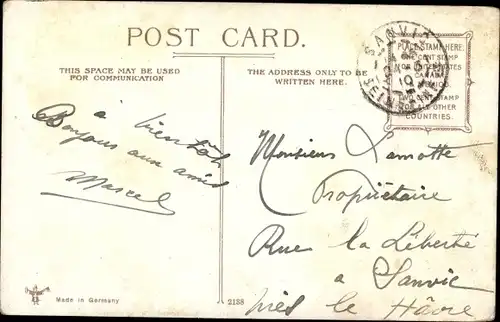 POST CARD.
THIS SPACE MAY BE USED
FOR COMMUNICATION
THE ADDRESS ONLY TO BE
WRITTEN HERE.
PLACE STAMP HERE:
ONE CENT STAMP
CANADA
TWO CENT STAMP
FOR ALL OTHER
COUNTRIES.
SANVIC
à bientôt
Bonjour aux amis
Marcel
Monsieur Lamotte
Propriétaire
Rue la Liberté
a Sanvic
près le Hâvre
Made in Germany
2138